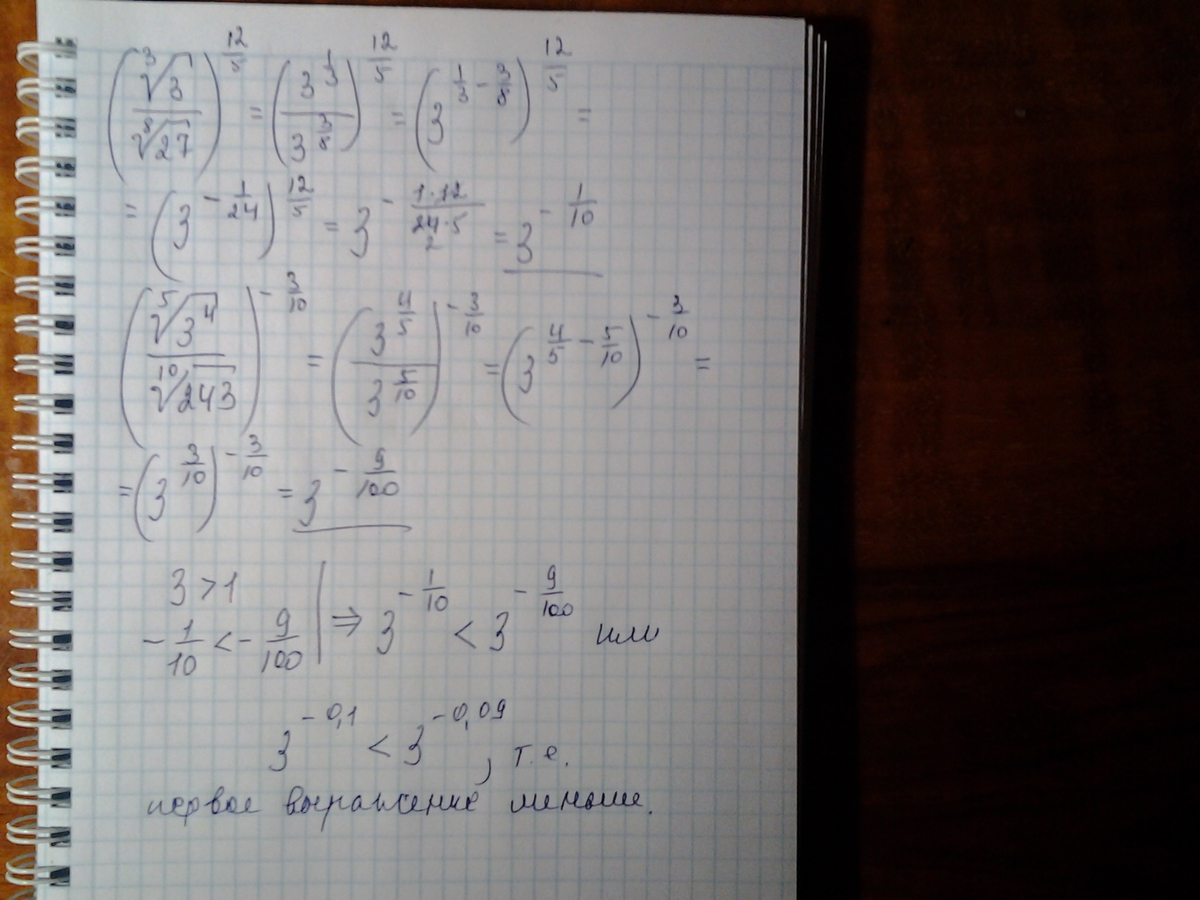 (∛3 / ⁸√27)^(12/5) = (3^(1/3) / 3^(3/8))^(12/5) = (3^(1/3 - 3/8))^(12/5) =
= (3^(-1/24))^(12/5) = 3^(-(1·12)/(24·5)) = 3^(-1/10)
(⁵√3⁴ / ¹⁰√243)^(-3/10) = (3^(4/5) / 3^(5/10))^(-3/10) = (3^(4/5 - 5/10))^(-3/10) =
= (3^(3/10))^(-3/10) = 3^(-9/100)
3 > 1
-1/10 < -9/100 | ⇒ 3^(-1/10) < 3^(-9/100) или
3^(-0,1) < 3^(-0,09), т.е.
первое выражение меньше.